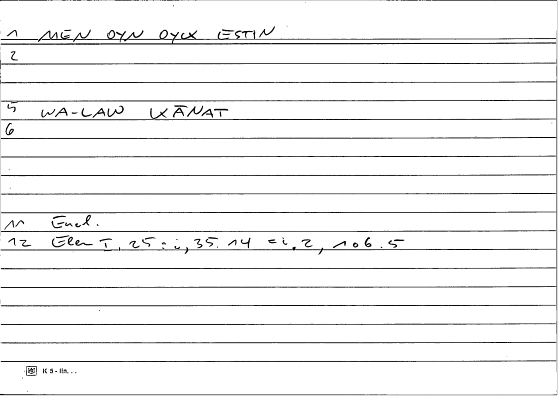 1 MEN OYN OYK ESTIN
2
5 WA-LAW KĀNAT
6
11 Eucl.
12 Elem I, 25 : i, 35.14 = i.2, 106.5
K 5 - lin. . .